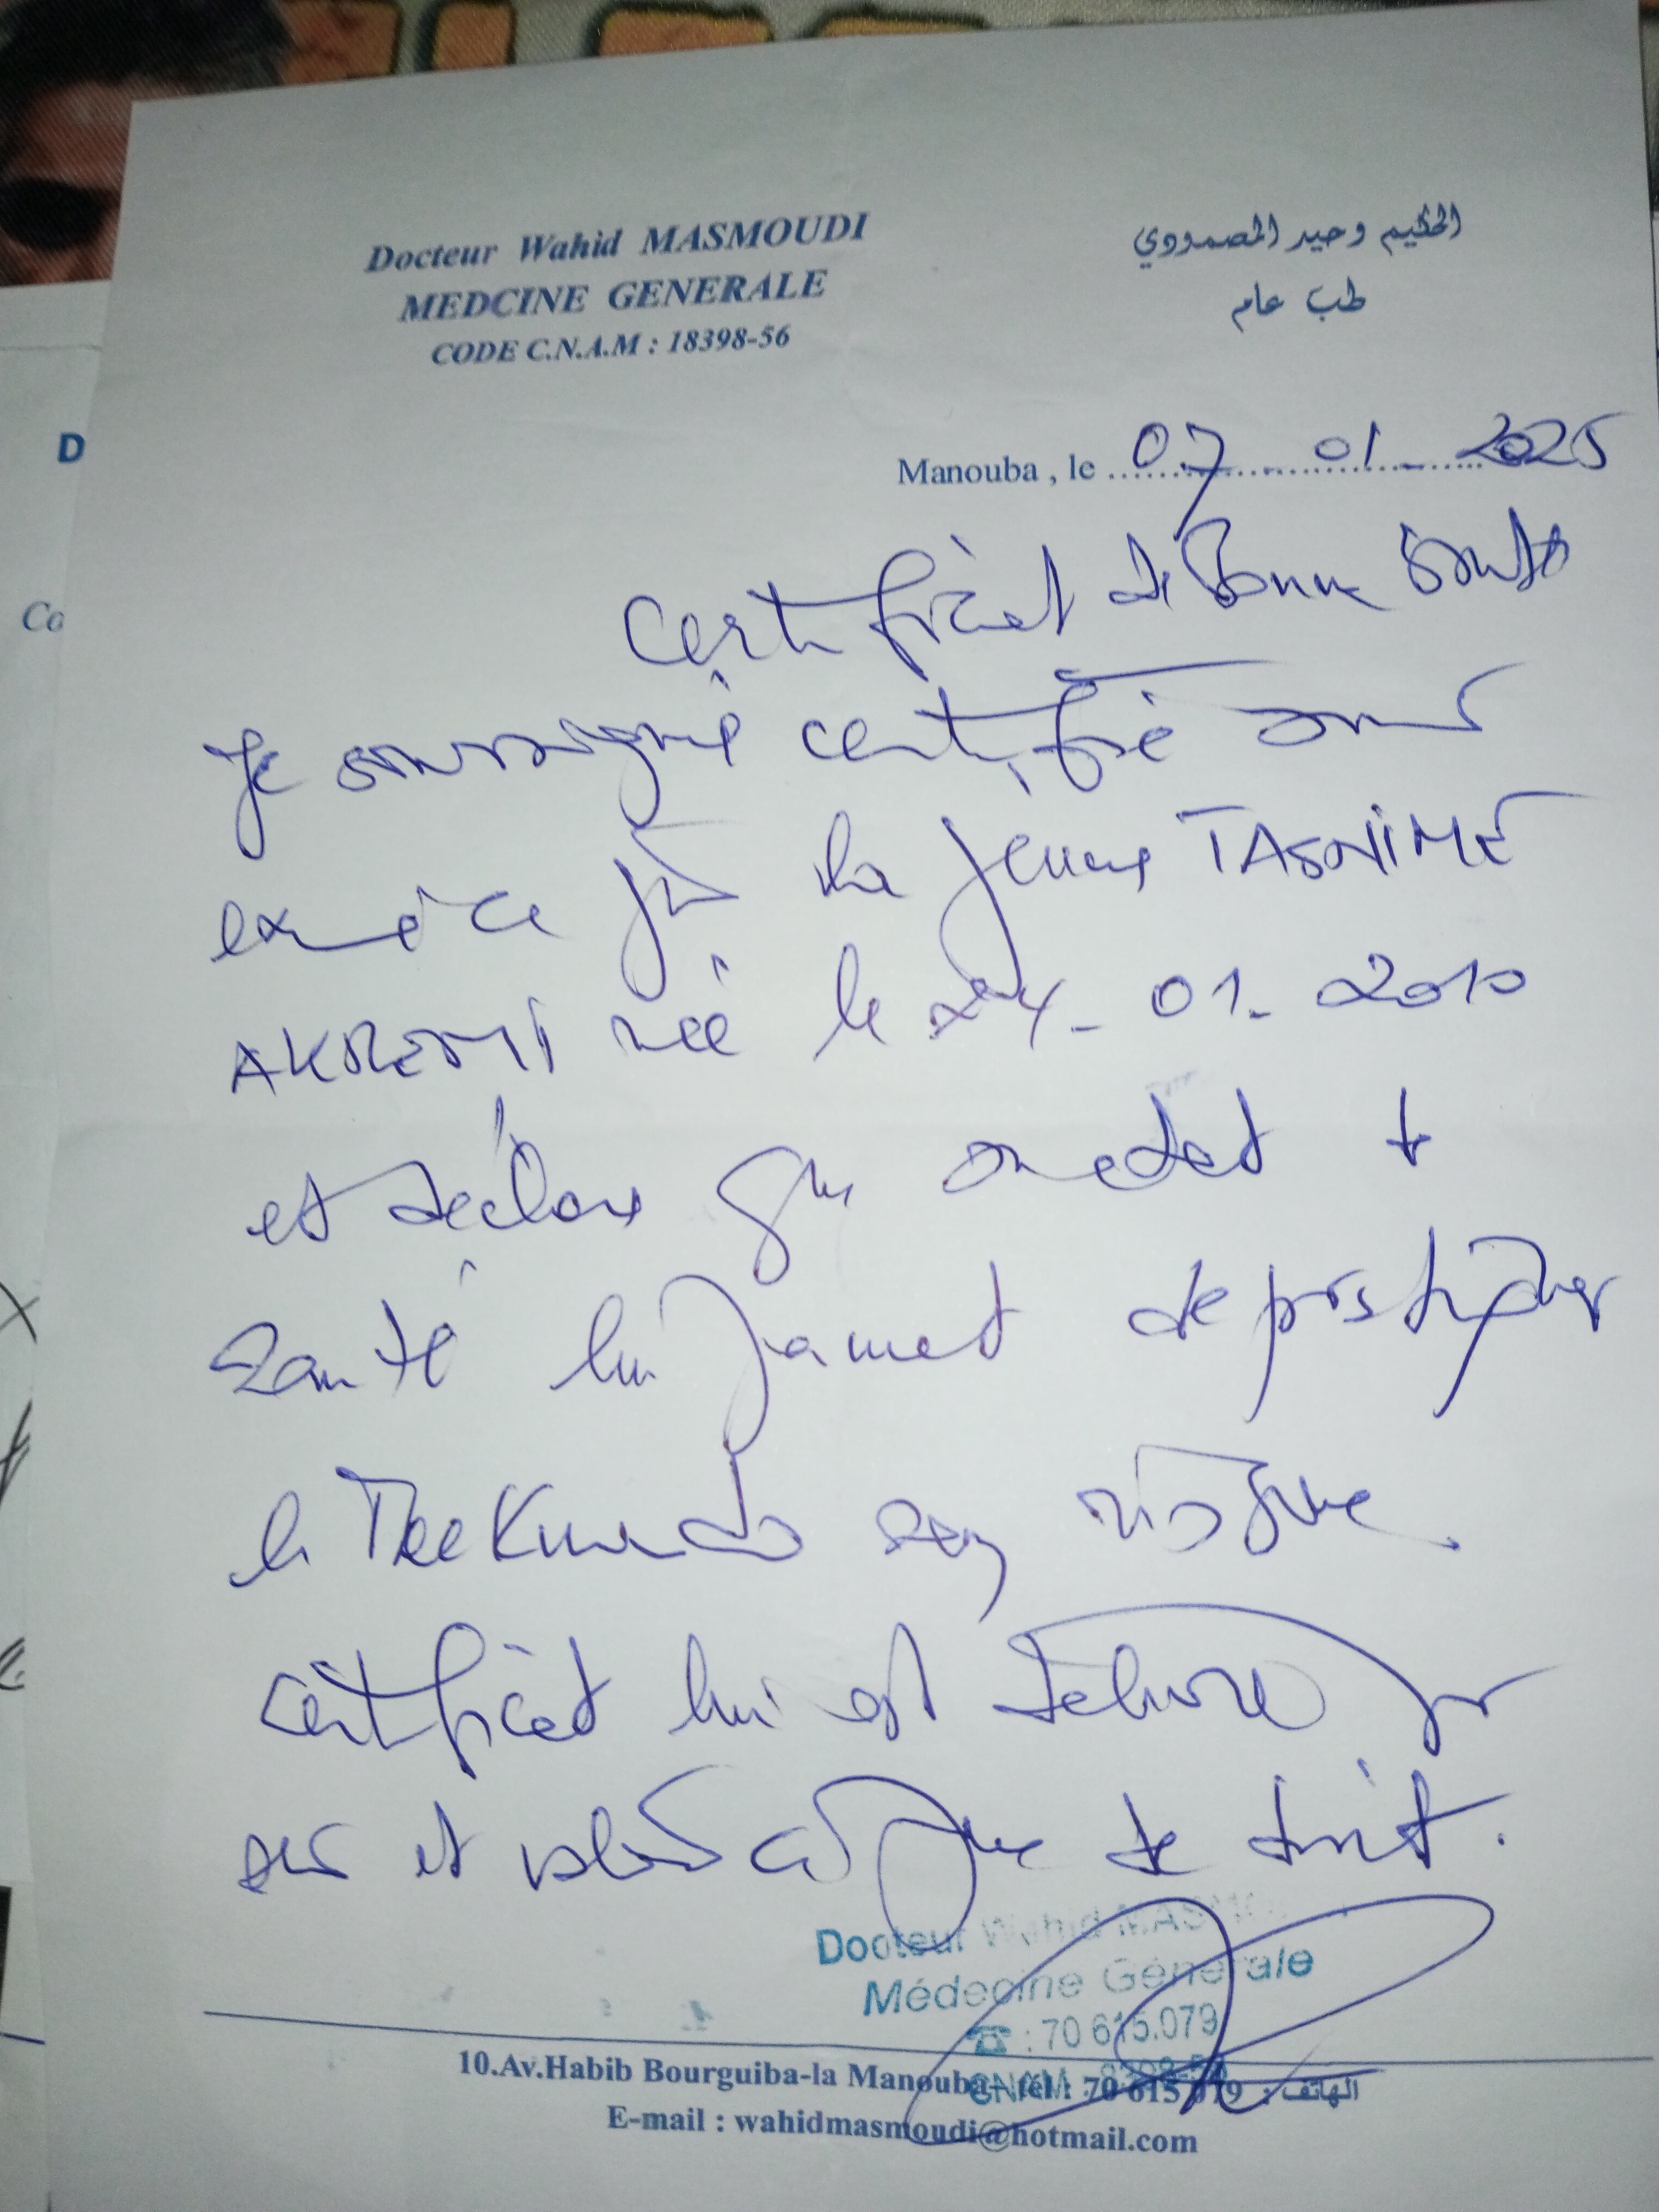 Docteur Wahid MASMOUDI
MEDCINE GENERALE
CODE C.N.A.M : 18398-56
الحكيم وحيد المصمودي
طب عام
Manouba , le 07-01-2025
Certificat de Bonne Santé
Je soussigné certifie avoir
examiné ce jour la jeune TASNIME
AKREMI née le 24-01-2010
et déclare que son etat de
Santé lui permet de pratiquer
le Taekwondo sans risque.
certificat lui est délivré pour
servir et valoir ce que de droit.
Docteur Wahid MAS
Médecine Générale
☎ : 70 615.079
CNAM
10.Av.Habib Bourguiba-la Manouba- tél : 70 615 079 : الهاتف
E-mail : wahidmasmoudi@hotmail.com
D
Co